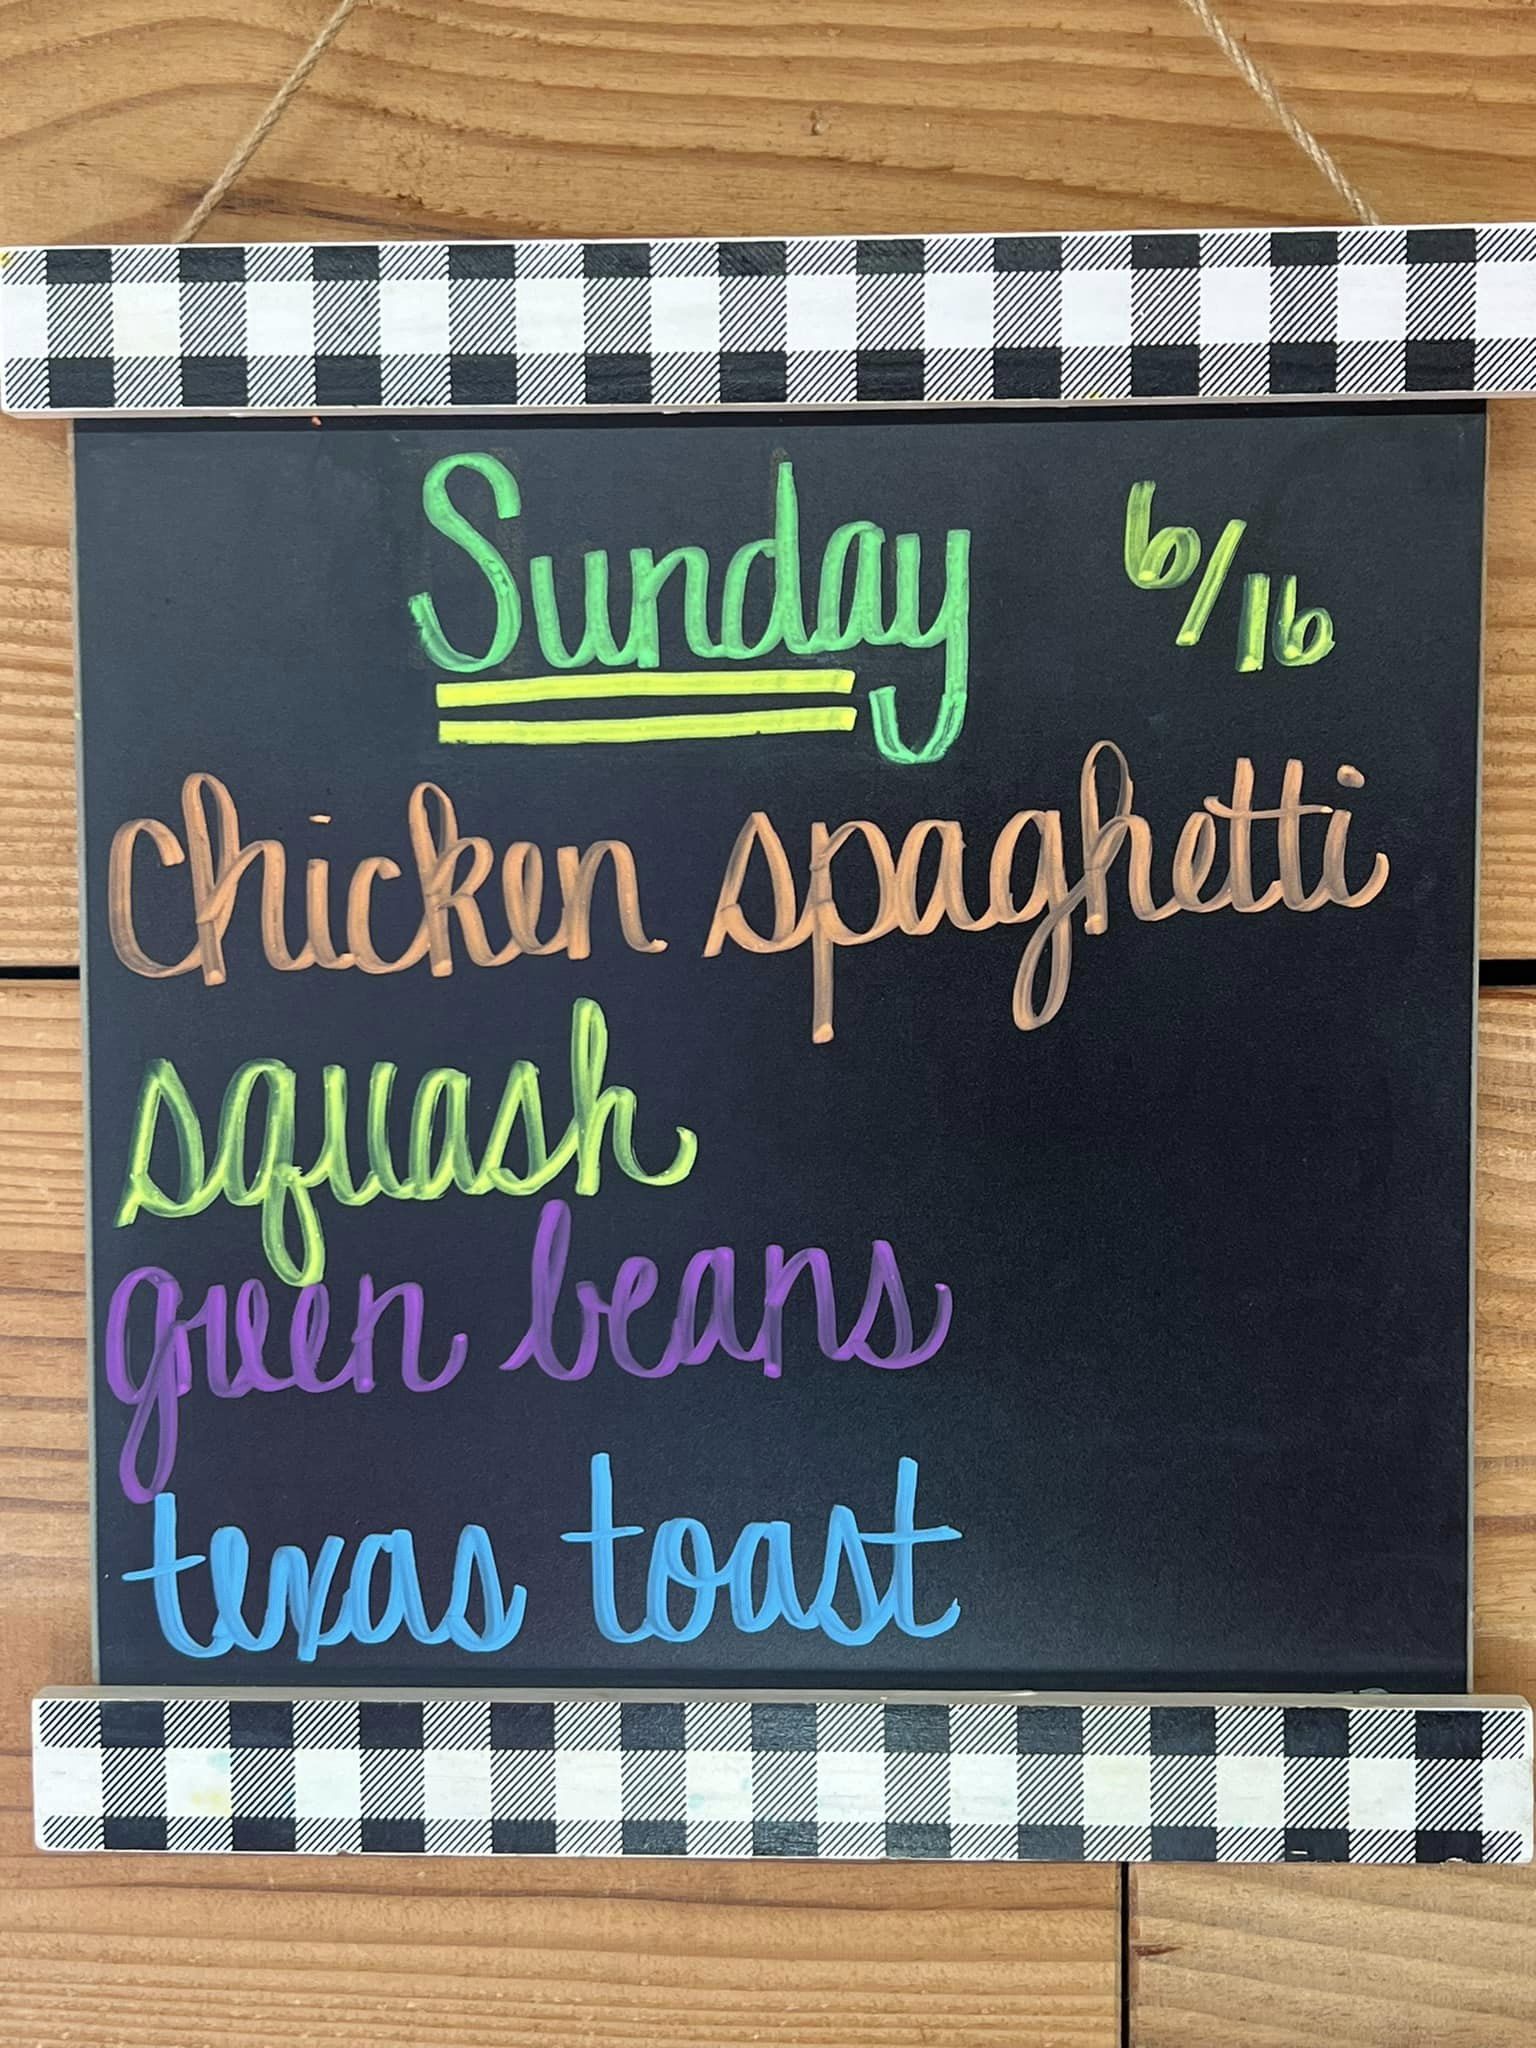 Sunday 6/16
chicken spaghetti
squash
green beans
texas toast